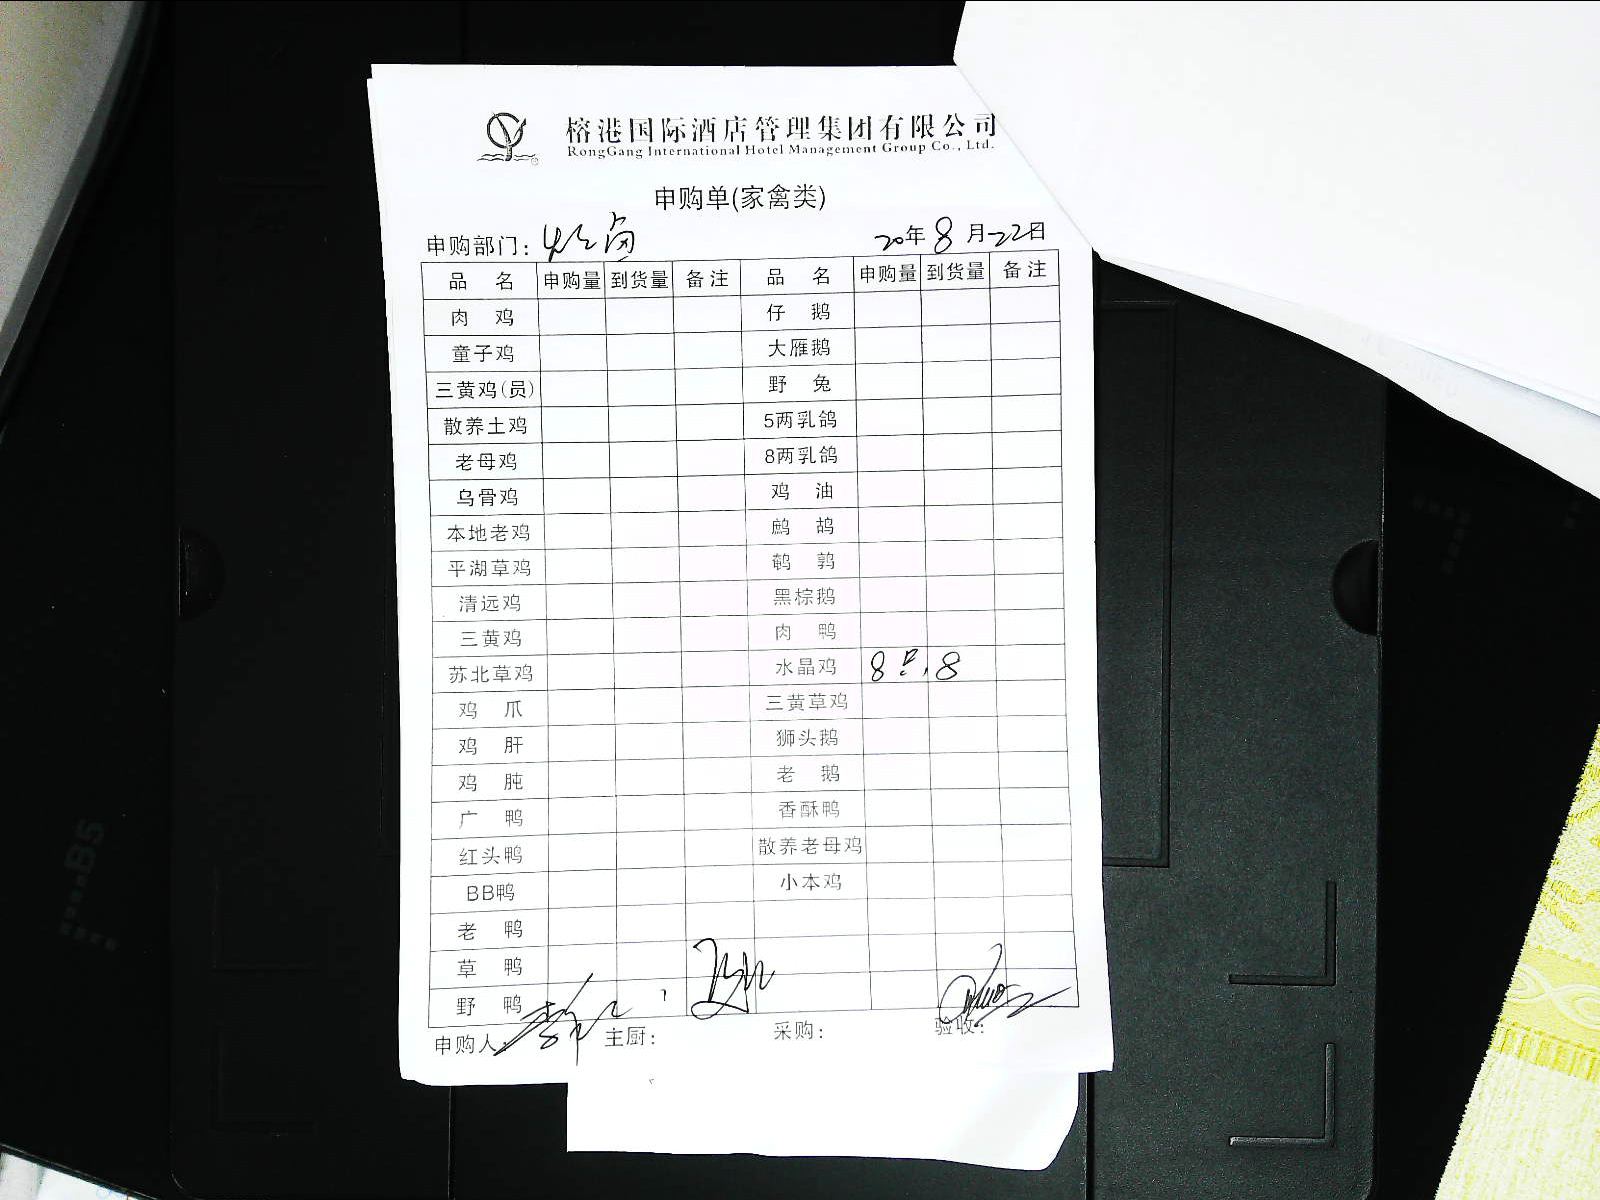 榕港国际酒店管理集团有限公司
RongGang International Hotel Management Group Co., Ltd.
申购单(家禽类)
申购部门: 卤 20年8月22日
品名 申购量 到货量 备注 品名 申购量 到货量 备注
肉鸡 仔鹅
童子鸡 大雁鹅
三黄鸡(员) 野兔
散养土鸡 5两乳鸽
老母鸡 8两乳鸽
乌骨鸡 鸡油
本地老鸡 鹧鸪
平湖草鸡 鹌鹑
清远鸡 黑棕鹅
三黄鸡 肉鸭
苏北草鸡 水晶鸡 8只 8
鸡爪 三黄草鸡
鸡肝 狮头鹅
鸡肫 老鹅
广鸭 香酥鸭
红头鸭 散养老母鸡
BB鸭 小本鸡
老鸭
草鸭
野鸭
申购人: 主厨: 采购: 验收:
B5